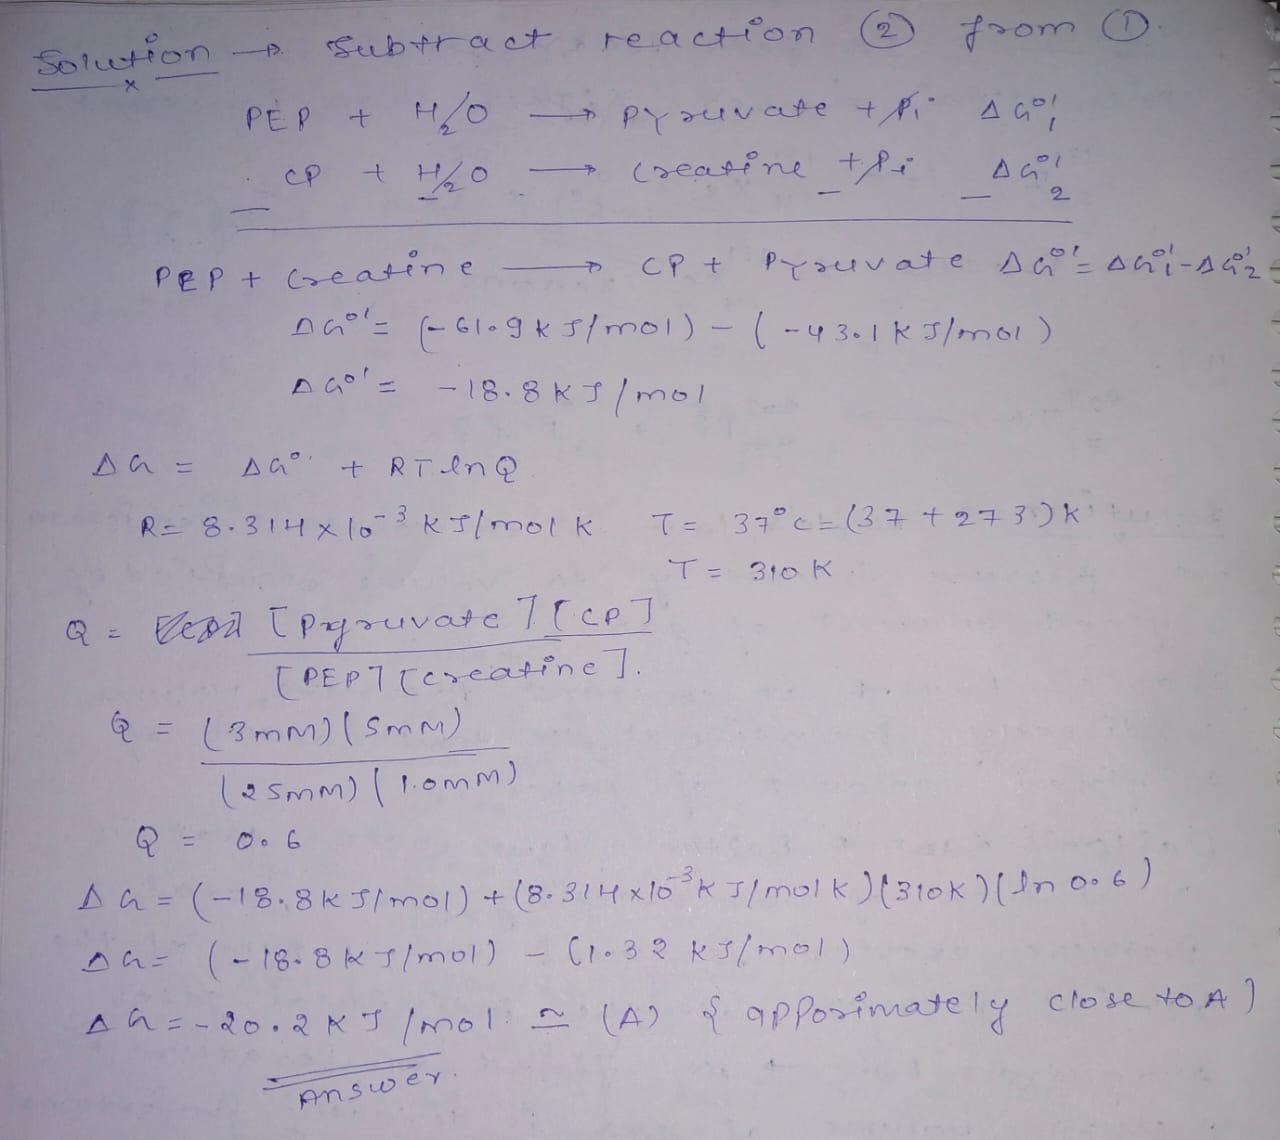 Solution → Subtract reaction ② from ①.
PEP + H₂O → Pyruvate + Pi ΔG°'₁
CP + H₂O → Creatine + Pi ΔG°'₂
PEP + Creatine → CP + Pyruvate ΔG°' = ΔG°'₁ - ΔG°'₂
ΔG°' = (-61.9 kJ/mol) - (-43.1 kJ/mol)
ΔG°' = -18.8 kJ/mol
ΔG = ΔG°' + RT ln Q
R = 8.314 × 10⁻³ kJ/mol K T = 37°C = (37 + 273) K
T = 310 K
Q = [Pyruvate] [CP]
[PEP] [Creatine].
Q = (3mM) (5mM)
(25mM) (1.0mM)
Q = 0.6
ΔG = (-18.8 kJ/mol) + (8.314 × 10⁻³ kJ/mol K) (310K) (ln 0.6)
ΔG = (-18.8 kJ/mol) - (1.32 kJ/mol)
ΔG = -20.2 kJ/mol ≃ (A) { apporimately close to A }
Answer.